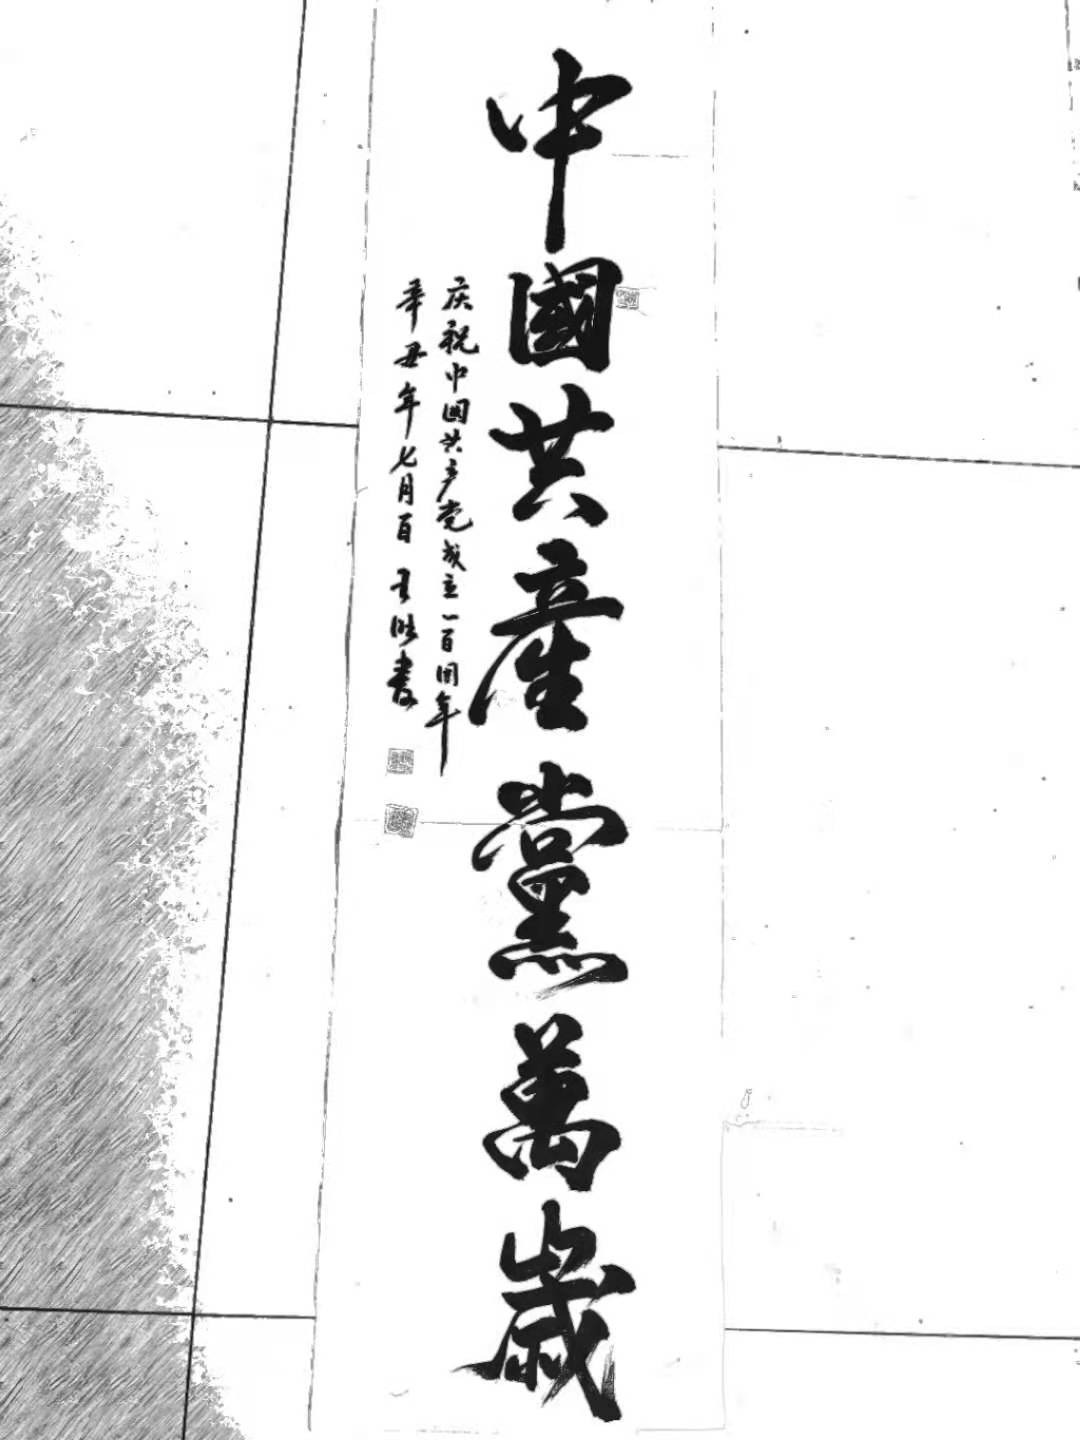 中國共產黨萬歲
庆祝中国共产党成立一百周年
辛丑年七月一日 书